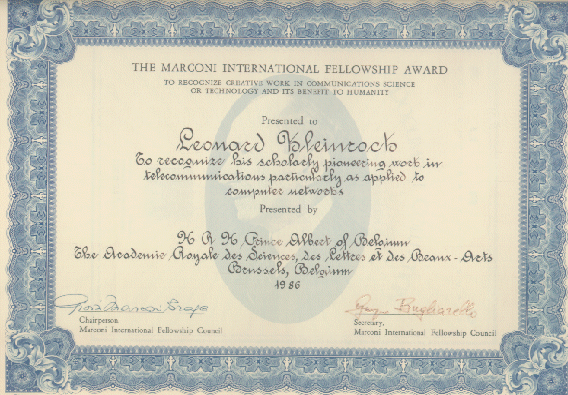 THE MARCONI INTERNATIONAL FELLOWSHIP AWARD
TO RECOGNIZE CREATIVE WORK IN COMMUNICATIONS SCIENCE
OR TECHNOLOGY AND ITS BENEFIT TO HUMANITY
Presented to
Leonard Kleinrock
To recognize his scholarly pioneering work in
telecommunications particularly as applied to
computer networks
Presented by
H R H Prince Albert of Belgium
The Academie Royale des Sciences, des Lettres et des Beaux-Arts
Brussels, Belgium
1986
Gioia Marconi Braga
Chairperson
Marconi International Fellowship Council
George Bugliarello
Secretary,
Marconi International Fellowship Council